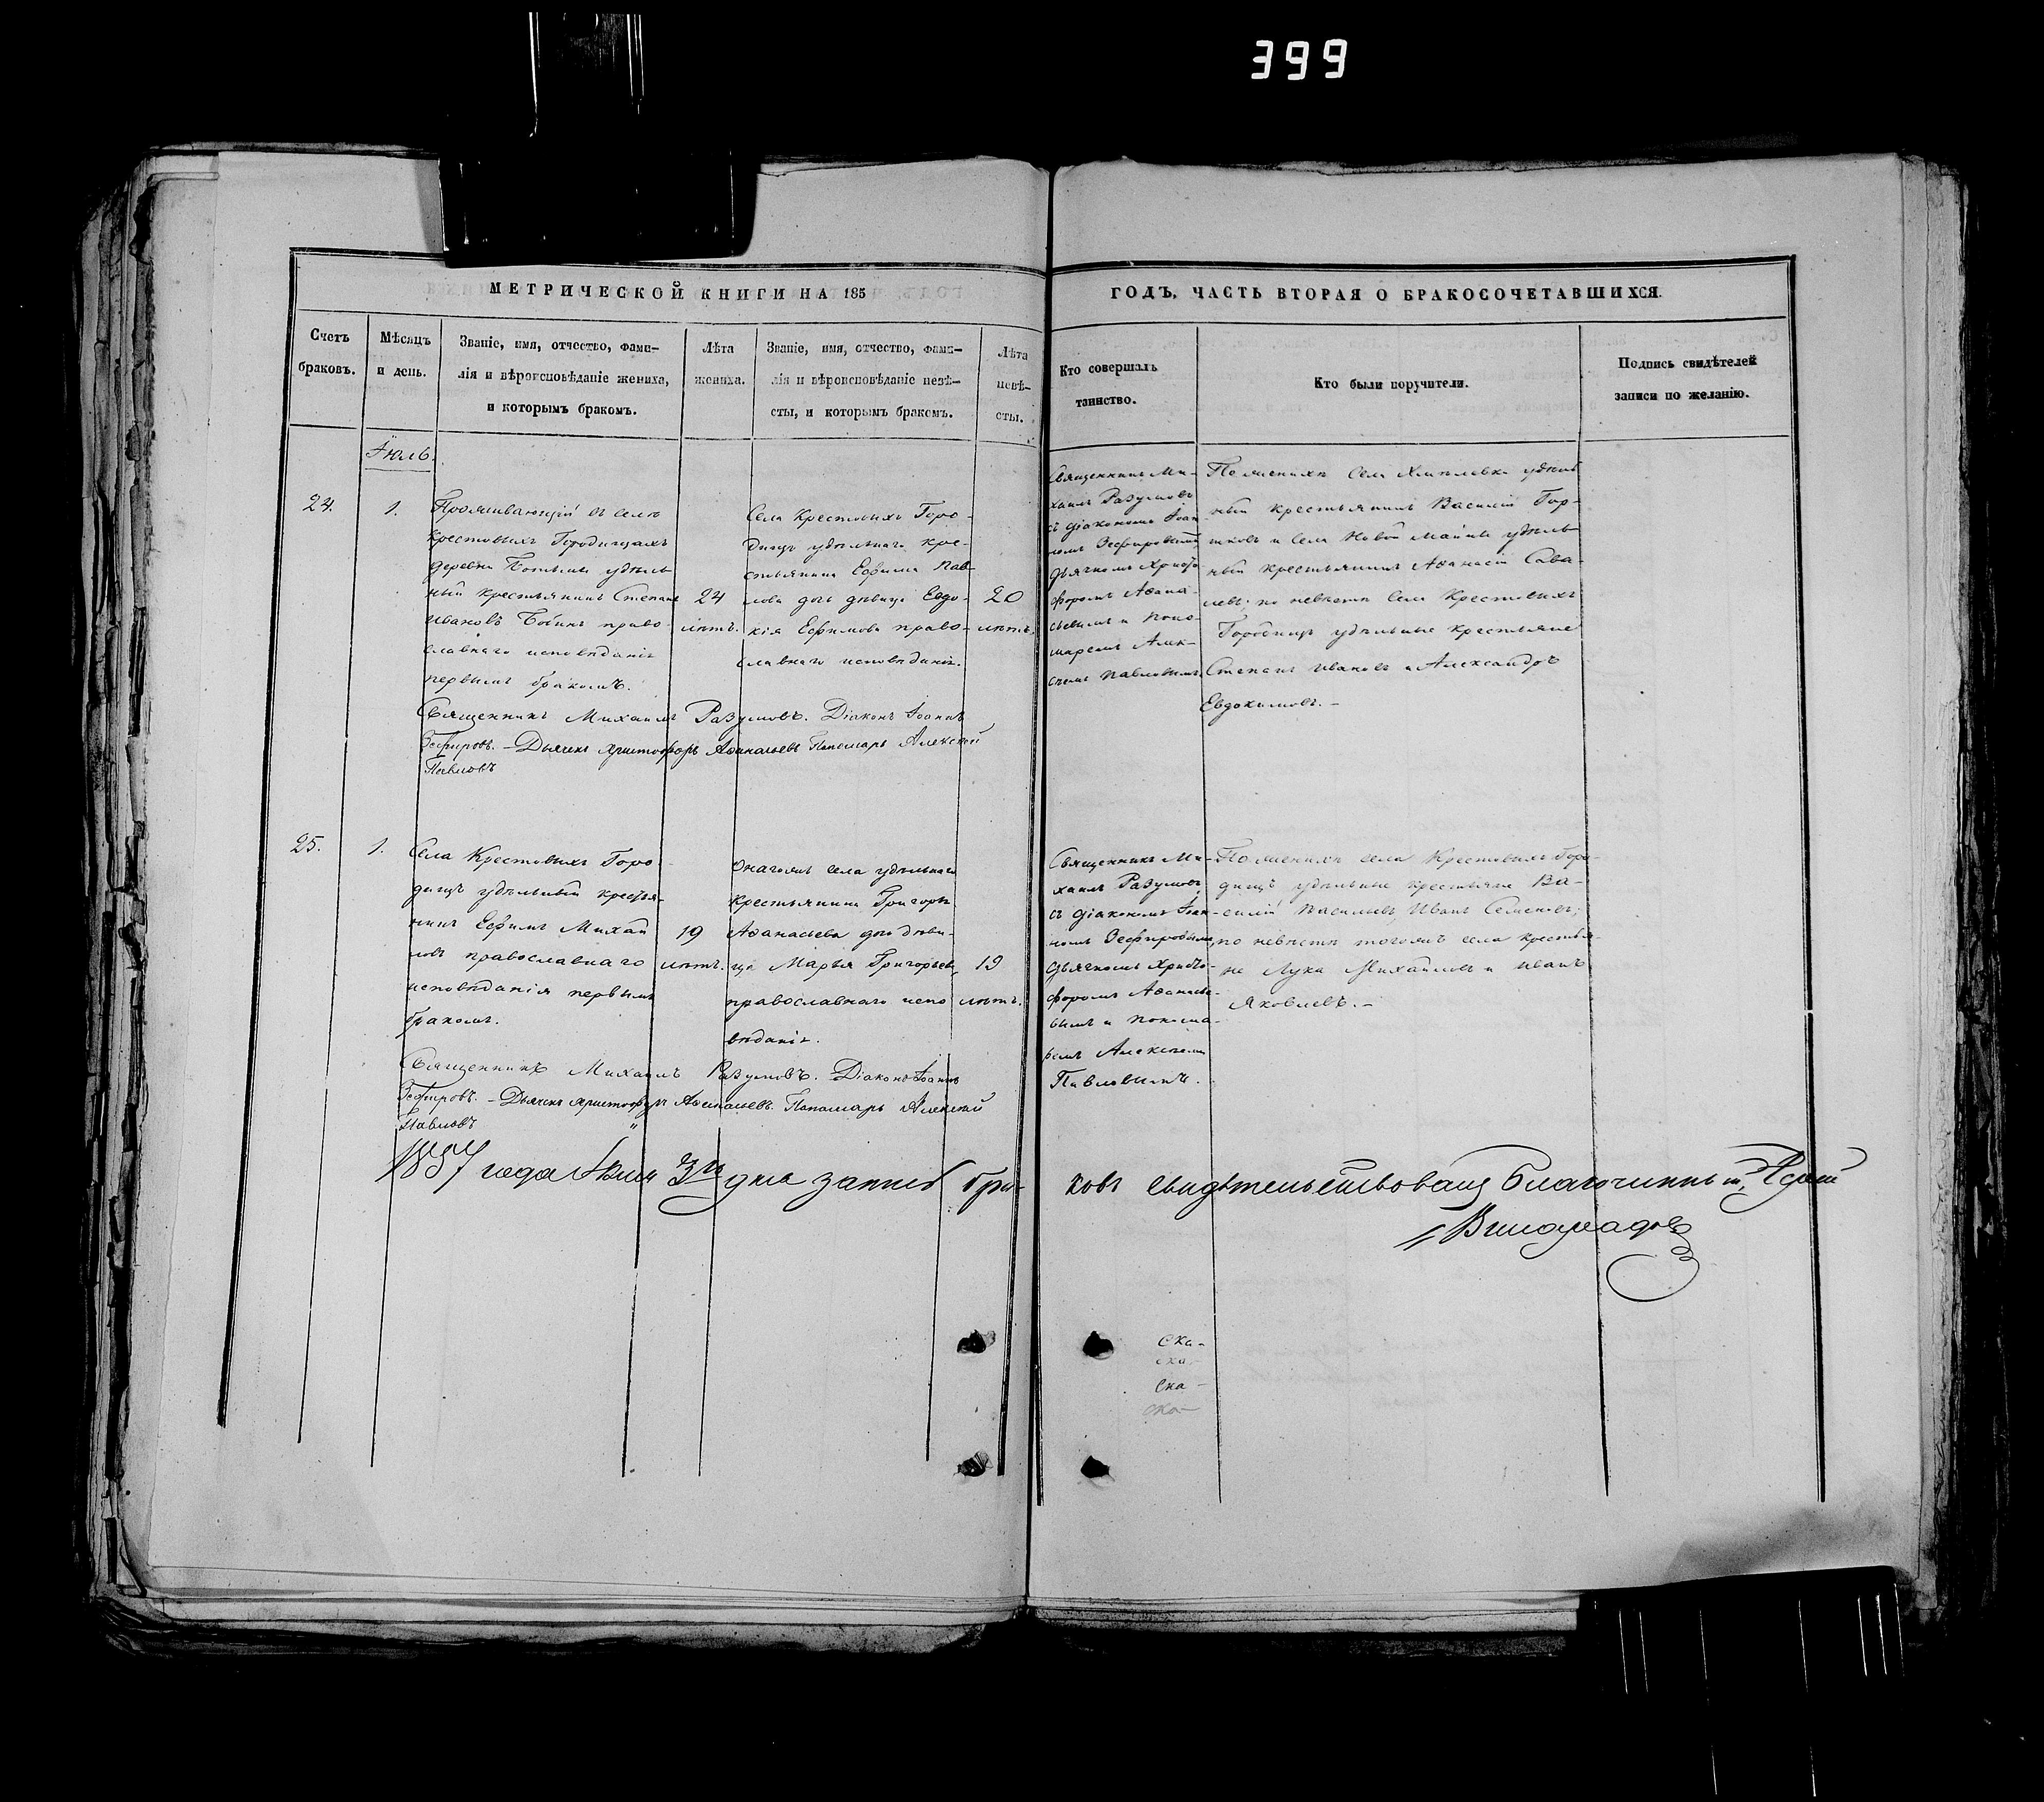 399
МЕТРИЧЕСКОЙ КНИГИ НА 185
ГОДЪ, ЧАСТЬ ВТОРАЯ О БРАКОСОЧЕТАВШИХСЯ.
Счетъ
браковъ.
Мѣсяцъ
и день.
Званіе, имя, отчество, фами-
лія и вѣроисповѣданіе жениха,
и которымъ бракомъ.
Лѣта
жениха.
Званіе, имя, отчество, фами-
лія и вѣроисповѣданіе невѣ-
сты, и которымъ бракомъ.
Лѣта
невѣ-
сты.
Кто совершалъ
таинство.
Кто были поручители.
Подпись свидѣтелей
записи по желанію.
Іюль.
24.
1.
Проживающій въ селѣ
Крестовыхъ Городищахъ
деревни удѣль
ный крестьянинъ Степанъ
Ивановъ Бобинъ право-
славнаго исповѣданія
первымъ бракомъ.
24
лѣтъ.
Села Крестовыхъ Горо-
дищъ удѣльнаго кре-
стьянина Ефима Пав-
лова дочь дѣвица Евдо-
кія Ефимова право-
славнаго исповѣданія.
20
лѣтъ.
Священникъ Ми-
хаилъ Разумовъ
съ діакономъ Іоан-
номъ Зефировымъ,
дьячкомъ Христо-
форомъ Аѳана-
сьевымъ и поно-
маремъ Алек-
сѣемъ Павловымъ.
По женихѣ Села удѣль
ный крестьянинъ Василій Гор-
шковъ и Села Новой Майны удѣль
ный крестьянинъ Аѳанасій Сава-
левъ; по невѣстѣ Села Крестовыхъ
Городищъ удѣльные крестьяне
Степанъ Ивановъ и Александръ
Евдокимовъ. –
Священникъ Михаилъ Разумовъ. Діаконъ Іоаннъ
Зефировъ. – Дьячекъ Христофоръ Аѳанасьевъ Пономарь Алексѣй
Павловъ
25.
1.
Села Крестовыхъ Горо-
дищъ удѣльный крестья-
нинъ Ефимъ Михай
ловъ православнаго
исповѣданія первымъ
бракомъ.
19
лѣтъ.
Онагожъ села удѣльнаго
крестьянина Григорья
Аѳанасьева дочь дѣви-
ца Марья Григорьева
православнаго испо
вѣданія.
19
лѣтъ.
Священникъ Ми-
хаилъ Разумовъ
съ діакономъ Іоан-
номъ Зефировымъ,
дьячкомъ Христо-
форомъ Аѳанасье-
вымъ и понома-
ремъ Алексѣемъ
Павловымъ.
По женихѣ села Крестовыхъ Горо-
дищъ удѣльные крестьяне Ва-
силій Васильевъ Иванъ Семеновъ;
по невѣстѣ тогожъ села крестья-
не Лука Михайловъ и Иванъ
Яковлевъ. –
Священникъ Михаилъ Разумовъ. Діаконъ Іоаннъ
Зефировъ. – Дьячекъ Христофоръ Аѳанасьевъ. Пономарь Алексѣй
Павловъ
1857 года Іюля 3го дня записъ бра-
ковъ свидѣтельствовалъ Благочинный, Іерей
Виноградовъ
Ска-
ска-
Ска-
ска-